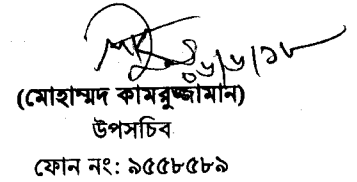 ০৬/৬/১৮
(মোহাম্মদ কামরুজ্জামান)
উপসচিব
ফোন নং: ৯৫৫৮৫৮৯